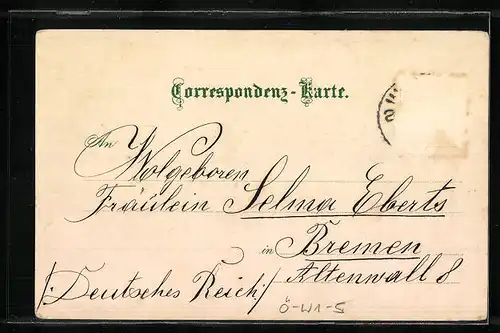 Correspondenz-Karte.
An Wolgeboren
Fräulein Selma Eberts
in Bremen
/:Deutsches Reich:/ Altenwall 8
Ö-W1-5